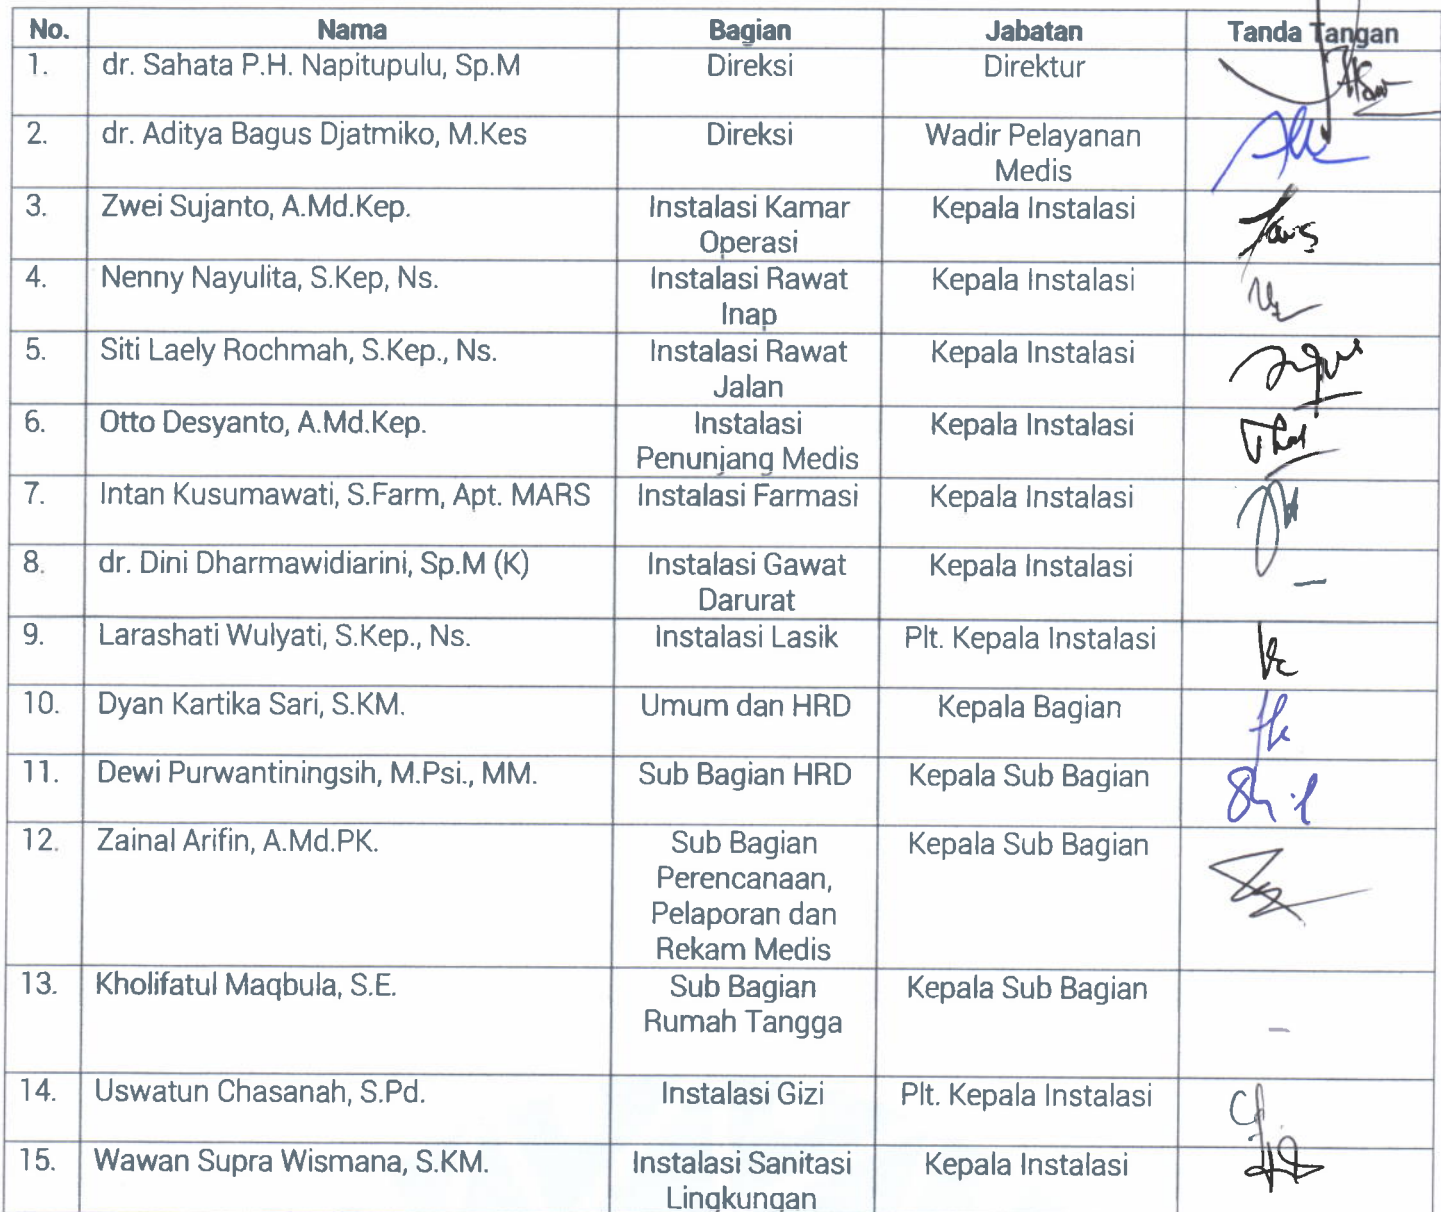 No. Nama Bagian Jabatan Tanda Tangan
1. dr. Sahata P.H. Napitupulu, Sp.M Direksi Direktur
2. dr. Aditya Bagus Djatmiko, M.Kes Direksi Wadir Pelayanan
Medis
3. Zwei Sujanto, A.Md.Kep. Instalasi Kamar Kepala Instalasi
Operasi
4. Nenny Nayulita, S.Kep, Ns. Instalasi Rawat Kepala Instalasi
Inap
5. Siti Laely Rochmah, S.Kep., Ns. Instalasi Rawat Kepala Instalasi
Jalan
6. Otto Desyanto, A.Md.Kep. Instalasi Kepala Instalasi
Penunjang Medis
7. Intan Kusumawati, S.Farm, Apt. MARS Instalasi Farmasi Kepala Instalasi
8. dr. Dini Dharmawidiarini, Sp.M (K) Instalasi Gawat Kepala Instalasi –
Darurat
9. Larashati Wulyati, S.Kep., Ns. Instalasi Lasik Plt. Kepala Instalasi
10. Dyan Kartika Sari, S.KM. Umum dan HRD Kepala Bagian
11. Dewi Purwantiningsih, M.Psi., MM. Sub Bagian HRD Kepala Sub Bagian
12. Zainal Arifin, A.Md.PK. Sub Bagian Kepala Sub Bagian
Perencanaan,
Pelaporan dan
Rekam Medis
13. Kholifatul Maqbula, S.E. Sub Bagian Kepala Sub Bagian
Rumah Tangga –
14. Uswatun Chasanah, S.Pd. Instalasi Gizi Plt. Kepala Instalasi
15. Wawan Supra Wismana, S.KM. Instalasi Sanitasi Kepala Instalasi
Lingkungan